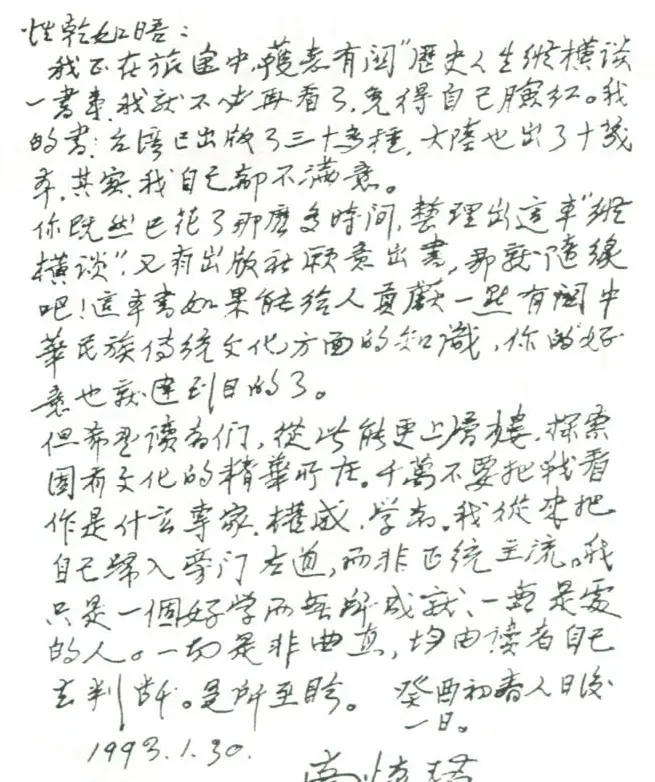 性乾如晤:
我正在旅途中,獲悉有関“歷史人生縱橫谈
一書事,我就不必再看了,免得自己臉红。我
的書,台湾已出版了三十多種,大陸也出了十幾
本,其实,我自己都不满意。
你既然已花了那麼多時间,整理出這本“縱
橫谈”,又有出版社願意出書,那就隨緣
吧!這本書如果能给人貢獻一點有関中
華民族传統文化方面的知識,你的好
意也就達到目的了。
但希望读者们,從此能更上層樓,探索
固有文化的精華所在。千萬不要把我看
作是什么專家、權威、学者。我從來把
自己歸入旁门左道,而非正統主流。我
只是一個好学而無所成就、一無是處
的人。一切是非曲直,均由读者自己
去判断。是所至盼。 癸酉初春人日後
一日。
1993.1.30.
南懷瑾